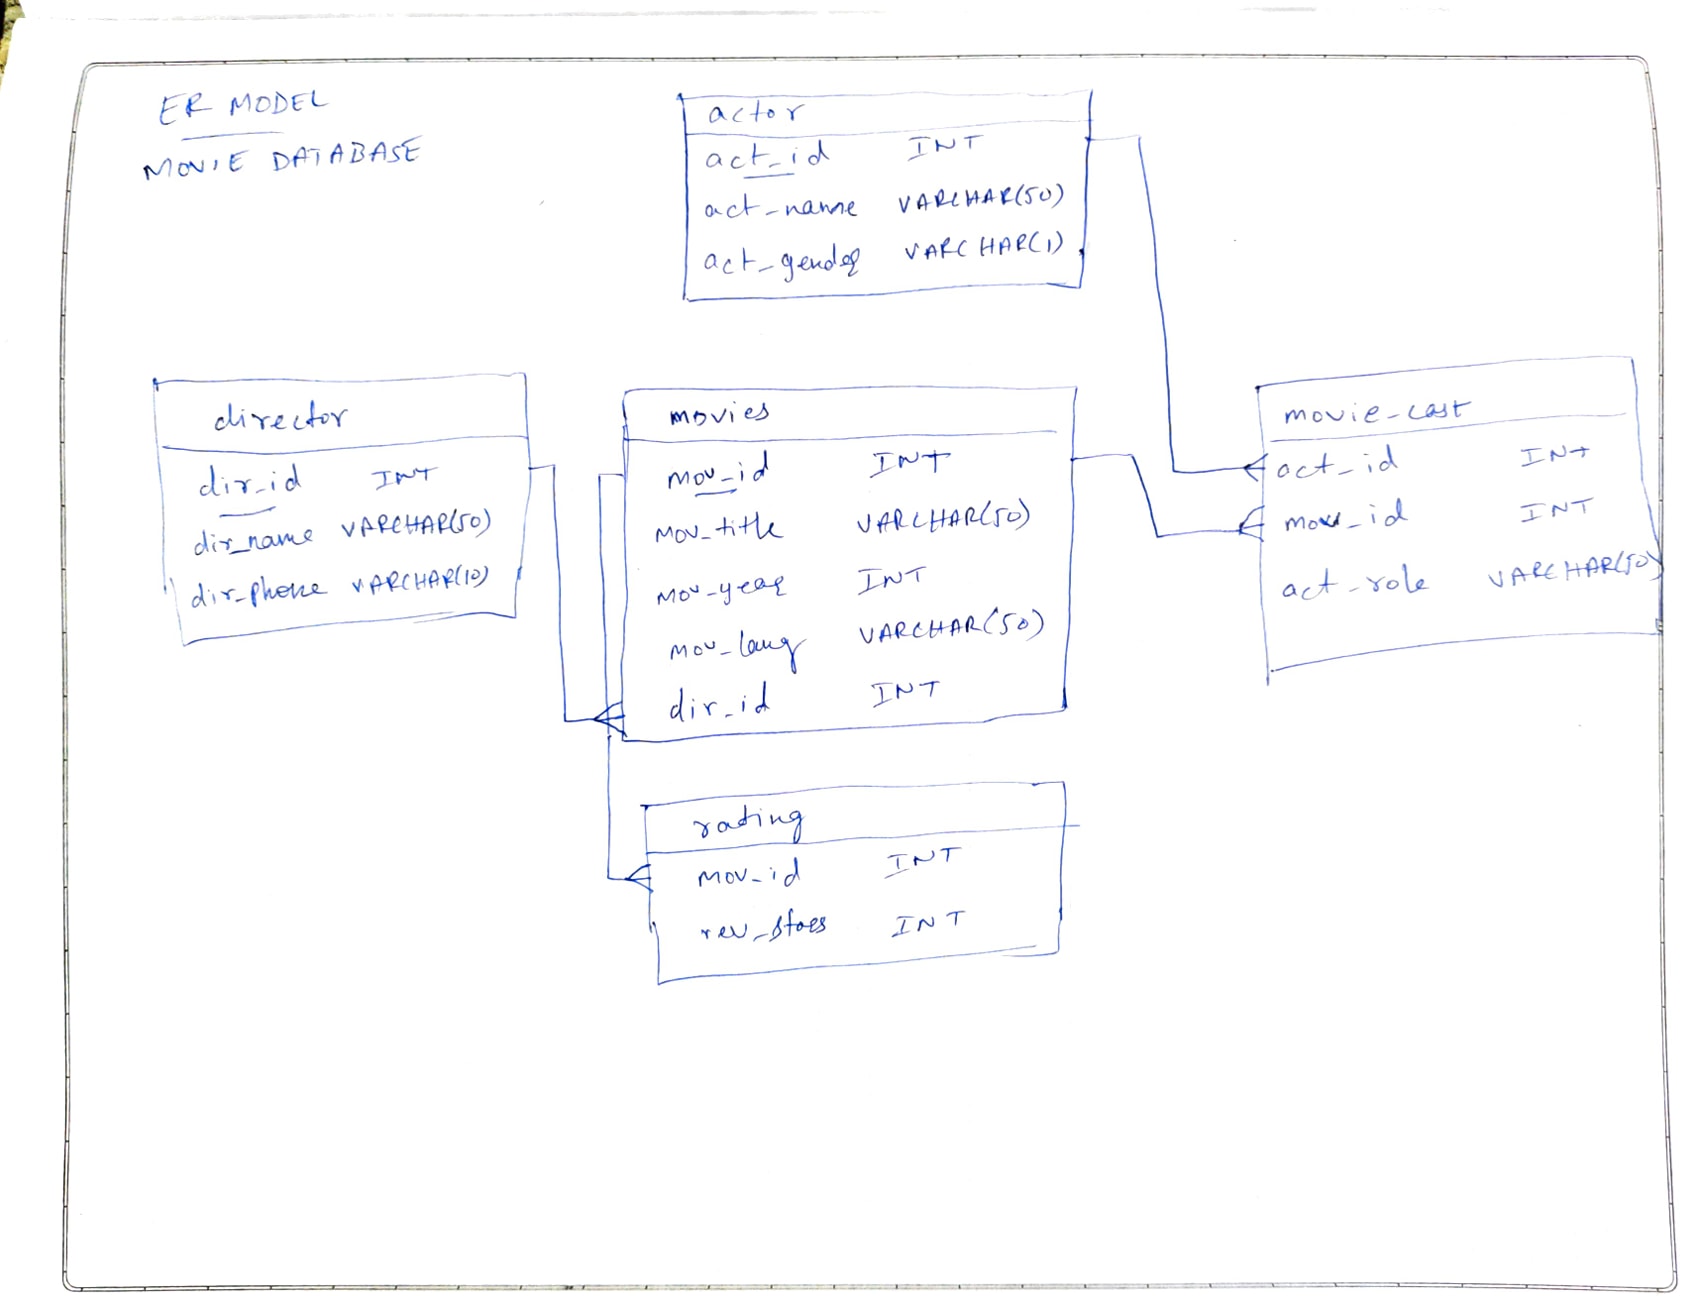 ER MODEL
MOVIE DATABASE
actor
act_id INT
act-name VARCHAR(50)
act-gender VARCHAR(1)
director
dir-id INT
dir_name VARCHAR(50)
dir-phone VARCHAR(10)
movies
mov-id INT
mov-title VARCHAR(50)
mov-year INT
mov-lang VARCHAR(50)
dir-id INT
movie-cast
act-id INT
mov-id INT
act-role VARCHAR(50)
rating
mov-id INT
rev-stars INT